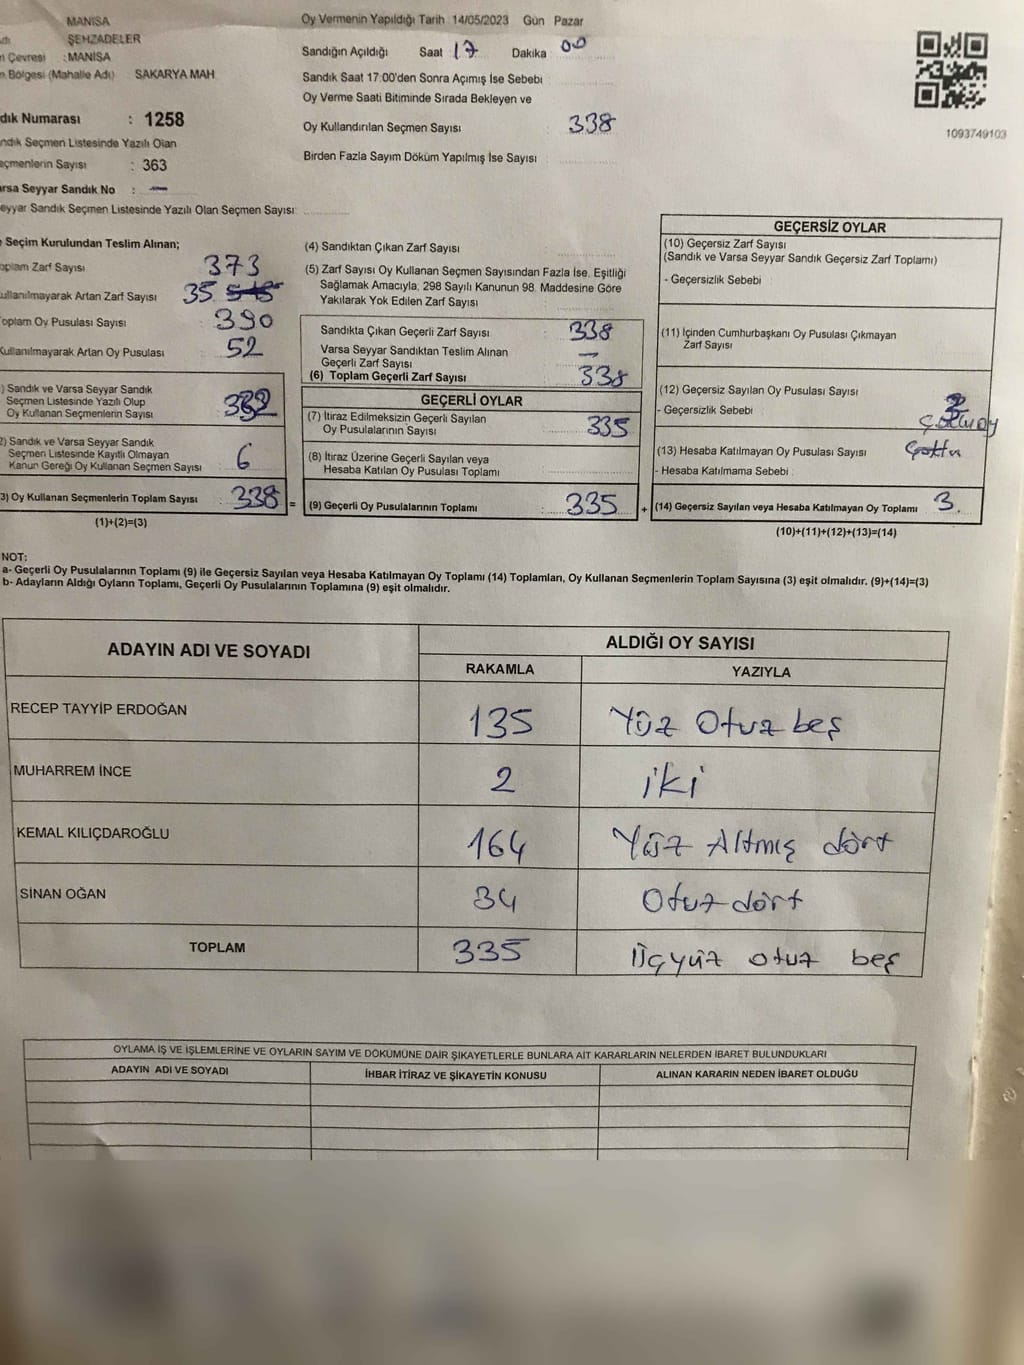 MANİSA
ŞEHZADELER
n Çevresi : MANİSA
n Bölgesi (Mahalle Adı) SAKARYA MAH.
dık Numarası : 1258
ndık Seçmen Listesinde Yazılı Olan
eçmenlerin Sayısı : 363
arsa Seyyar Sandık No : —
eyyar Sandık Seçmen Listesinde Yazılı Olan Seçmen Sayısı:
Oy Vermenin Yapıldığı Tarih 14/05/2023 Gün Pazar
Sandığın Açıldığı Saat 17 Dakika 00
Sandık Saat 17:00'den Sonra Açımış İse Sebebi
Oy Verme Saati Bitiminde Sırada Bekleyen ve
Oy Kullandırılan Seçmen Sayısı : 338
Birden Fazla Sayım Döküm Yapılmış İse Sayısı
1093749103
Seçim Kurulundan Teslim Alınan;
oplam Zarf Sayısı 373
ullanılmayarak Artan Zarf Sayısı 35
oplam Oy Pusulası Sayısı : 390
Kullanılmayarak Artan Oy Pusulası : 52
) Sandık ve Varsa Seyyar Sandık
Seçmen Listesinde Yazılı Olup
Oy Kullanan Seçmenlerin Sayısı : 332
2) Sandık ve Varsa Seyyar Sandık
Seçmen Listesinde Kayıtlı Olmayan
Kanun Gereği Oy Kullanan Seçmen Sayısı : 6
3) Oy Kullanan Seçmenlerin Toplam Sayısı : 338 =
(1)+(2)=(3)
(4) Sandıktan Çıkan Zarf Sayısı
(5) Zarf Sayısı Oy Kullanan Seçmen Sayısından Fazla İse, Eşitliği
Sağlamak Amacıyla; 298 Sayılı Kanunun 98. Maddesine Göre
Yakılarak Yok Edilen Zarf Sayısı
Sandıkta Çıkan Geçerli Zarf Sayısı 338
Varsa Seyyar Sandıktan Teslim Alınan
Geçerli Zarf Sayısı —
(6) Toplam Geçerli Zarf Sayısı : 338
GEÇERLİ OYLAR
(7) İtiraz Edilmeksizin Geçerli Sayılan
Oy Pusulalarının Sayısı 335
(8) İtiraz Üzerine Geçerli Sayılan veya
Hesaba Katılan Oy Pusulası Toplamı
(9) Geçerli Oy Pusulalarının Toplamı : 335 +
GEÇERSİZ OYLAR
(10) Geçersiz Zarf Sayısı
(Sandık ve Varsa Seyyar Sandık Geçersiz Zarf Toplamı)
- Geçersizlik Sebebi :
(11) İçinden Cumhurbaşkanı Oy Pusulası Çıkmayan
Zarf Sayısı
(12) Geçersiz Sayılan Oy Pusulası Sayısı : 3
- Geçersizlik Sebebi :
(13) Hesaba Katılmayan Oy Pusulası Sayısı :
- Hesaba Katılmama Sebebi :
(14) Geçersiz Sayılan veya Hesaba Katılmayan Oy Toplamı 3.
(10)+(11)+(12)+(13)=(14)
NOT:
a- Geçerli Oy Pusulalarının Toplamı (9) ile Geçersiz Sayılan veya Hesaba Katılmayan Oy Toplamı (14) Toplamları, Oy Kullanan Seçmenlerin Toplam Sayısına (3) eşit olmalıdır. (9)+(14)=(3)
b- Adayların Aldığı Oyların Toplamı, Geçerli Oy Pusulalarının Toplamına (9) eşit olmalıdır.
ADAYIN ADI VE SOYADI ALDIĞI OY SAYISI
RAKAMLA YAZIYLA
RECEP TAYYİP ERDOĞAN 135 Yüz Otuz beş
MUHARREM İNCE 2 iki
KEMAL KILIÇDAROĞLU 164 Yüz Altmış dört
SİNAN OĞAN 34 Otuz dört
TOPLAM 335 Üçyüz otuz beş
OYLAMA İŞ VE İŞLEMLERİNE VE OYLARIN SAYIM VE DÖKÜMÜNE DAİR ŞİKAYETLERLE BUNLARA AİT KARARLARIN NELERDEN İBARET BULUNDUKLARI
ADAYIN ADI VE SOYADI İHBAR İTİRAZ VE ŞİKAYETİN KONUSU ALINAN KARARIN NEDEN İBARET OLDUĞU